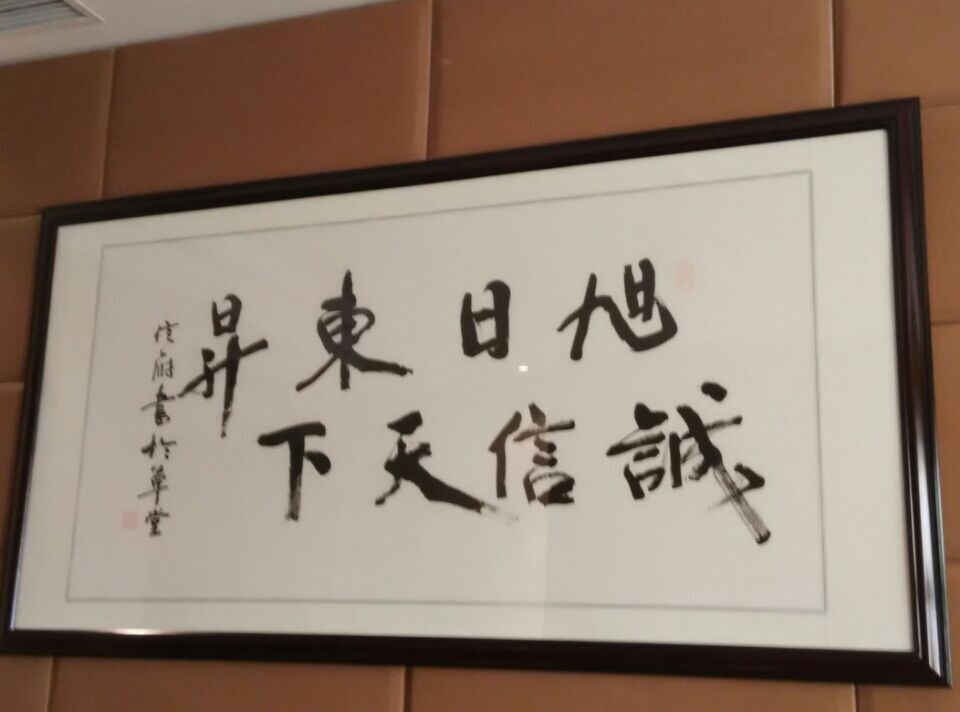 旭日東昇
誠信天下
信府書於草堂